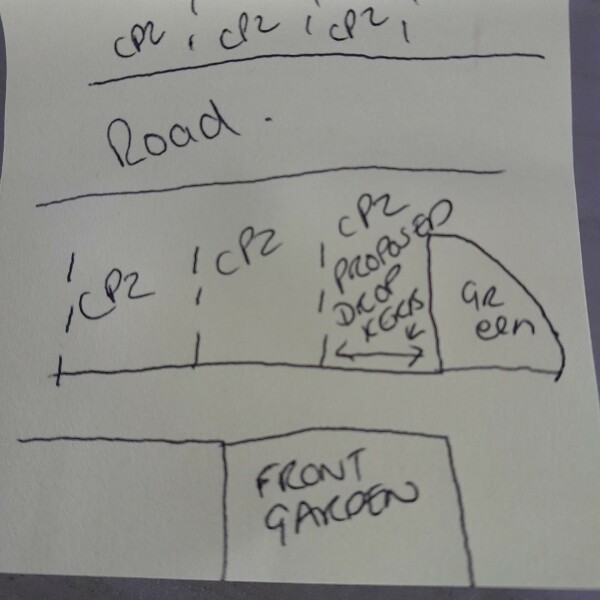 CPZ CPZ CPZ
Road.
CPZ CPZ CPZ
PROPOSED
DROP
KERB
GR
een
FRONT
GARDEN